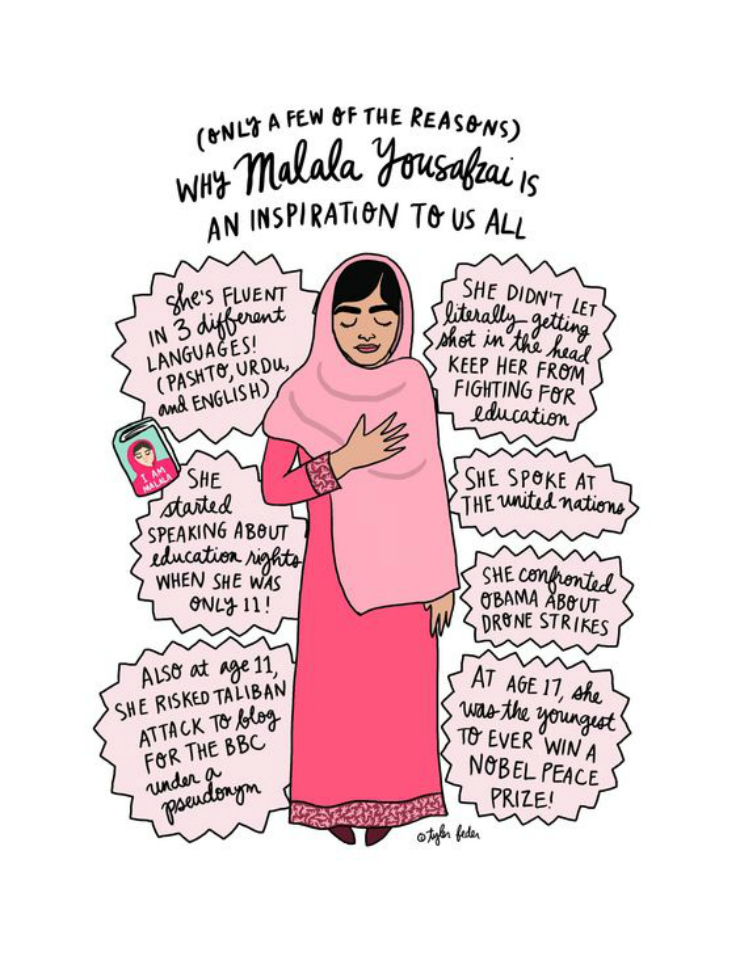 (ONLY A FEW OF THE REASONS)
WHY Malala Yousafzai IS
AN INSPIRATION TO US ALL
She's FLUENT
IN 3 different
LANGUAGES!
(PASHTO, URDU,
and ENGLISH)
I AM
MALALA
SHE
started
SPEAKING ABOUT
education rights
WHEN SHE WAS
ONLY 11!
ALSO at age 11,
SHE RISKED TALIBAN
ATTACK TO blog
FOR THE BBC
under a
pseudonym
SHE DIDN'T LET
literally getting
shot in the head
KEEP HER FROM
FIGHTING FOR
education
SHE SPOKE AT
THE united nations
SHE confronted
OBAMA ABOUT
DRONE STRIKES
AT AGE 17, she
was the youngest
TO EVER WIN A
NOBEL PEACE
PRIZE!
©tyler feder